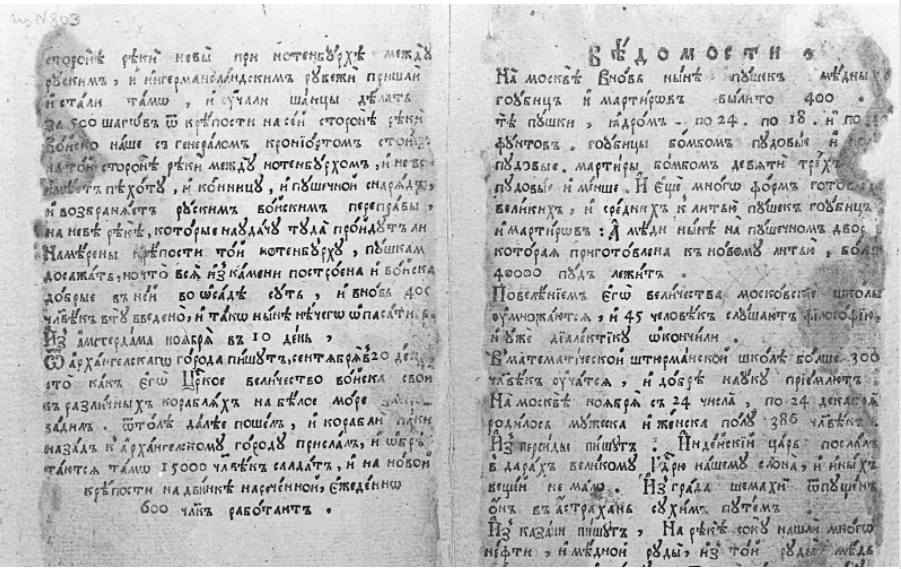 из N 803
сторонѣ рѣки невы при нотенбурхѣ между
руским, и ингерманландским рубежи пришли
и стали тамѡ, и ѹчали шанцы дѣлать
за 500 шагѡвъ ѿ крѣпости на сей сторонѣ рѣки
войско наше съ генераломъ крониортомъ
на той сторонѣ рѣки между нотенбурхомъ, и
пѣхоту, и конницу, и пушечной снарядъ,
и возбраняетъ рускимъ войскимъ переправы,
на невѣ рѣкѣ, которые наудачу туда пройдутъ ли
Намѣрены крѣпости той нотенбурху, пушкам
досажать, но что вся из камени построена и войска
добрые в ней во ѡсадѣ суть, и вновь 400
члвѣкъ в ту введено, и такѡ нынѣ нѣчегѡ ѡпасатися.
Из амстердама ноября въ 10 день,
Ѿ архангелскагѡ города пишутъ, сентября въ 20 день,
что какъ єгѡ Црⷭ҇кое величество войска свои
въ различныхъ корабляхъ на бѣлое море
ѿтолѣ далѣе пошелъ, и корабли паки
назадъ к архангелскому городу прислалъ, и ѡбрѣ
таются тамѡ 15000 члвѣкъ салдатъ, и на новой
крѣпости на двинкѣ нареченной, ежеденнѡ
600 члкъ работаютъ.
ВѢДОМОСТИ.
На москвѣ вновь нынѣ пушекъ мѣдныхъ
гоубицъ и мартирѡвъ вылито 400.
тѣ пушки, ядромъ по 24. по 18. и по
фунтовъ. гоубицы бомбомъ пудовые и
пудовые. мартиры бомбомъ девяти трехъ
пудовые и менше. И еще многѡ формъ готовыхъ
великихъ, и среднихъ к литью пушекъ гоубицъ
и мартирѡвъ: А мѣди нынѣ на пушечномъ дворѣ
которая приготовлена къ новому литью, болше
40000 пудъ лежитъ.
Повелѣніемъ єгѡ величества московскіе школы
ѹмножаются, и 45 человѣкъ слушаютъ философію,
и уже діалектику ѡкончили.
В математической штюрманской школѣ болше 300
члвѣкъ ѹчатся, и добрѣ науку пріемлютъ.
На москвѣ ноября съ 24 числа, по 24 декабря
родилось мужска и женска полу 386 члвѣкъ.
Из персиды пишутъ. Индѣйскій царь послалъ
в дарахъ великому Гдⷭ҇рю нашему слона, и иныхъ
вещей не мало. Из града шемахи ѿпущенъ
онъ въ астрахань сухимъ путемъ.
Из казани пишутъ, На рѣкѣ соку нашли многѡ
нефти, и мѣдной руды, изъ той руды мѣдь